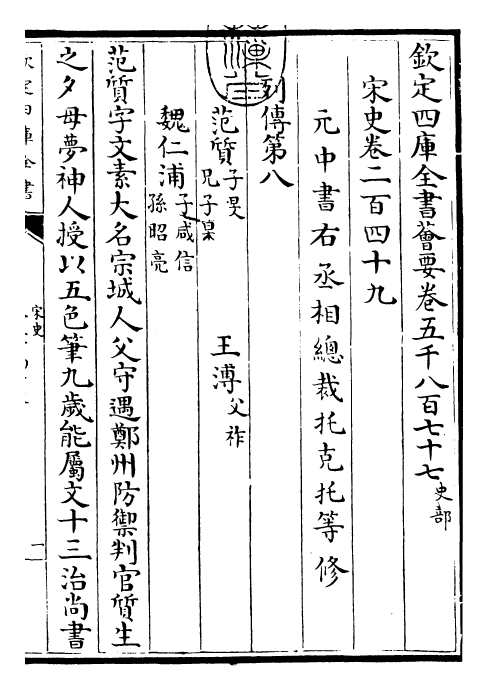 欽定四庫全書薈要卷五千八百七十七史部
宋史卷二百四十九
元中書右丞相總裁托克托等修
列傳第八
范質子旻兄子杲 王溥父祚
魏仁浦子咸信孫昭亮
范質字文素大名宗城人父守遇鄭州防禦判官質生
之夕母夢神人授以五色筆九歲能屬文十三治尚書
欽定四庫全書
宋史
二